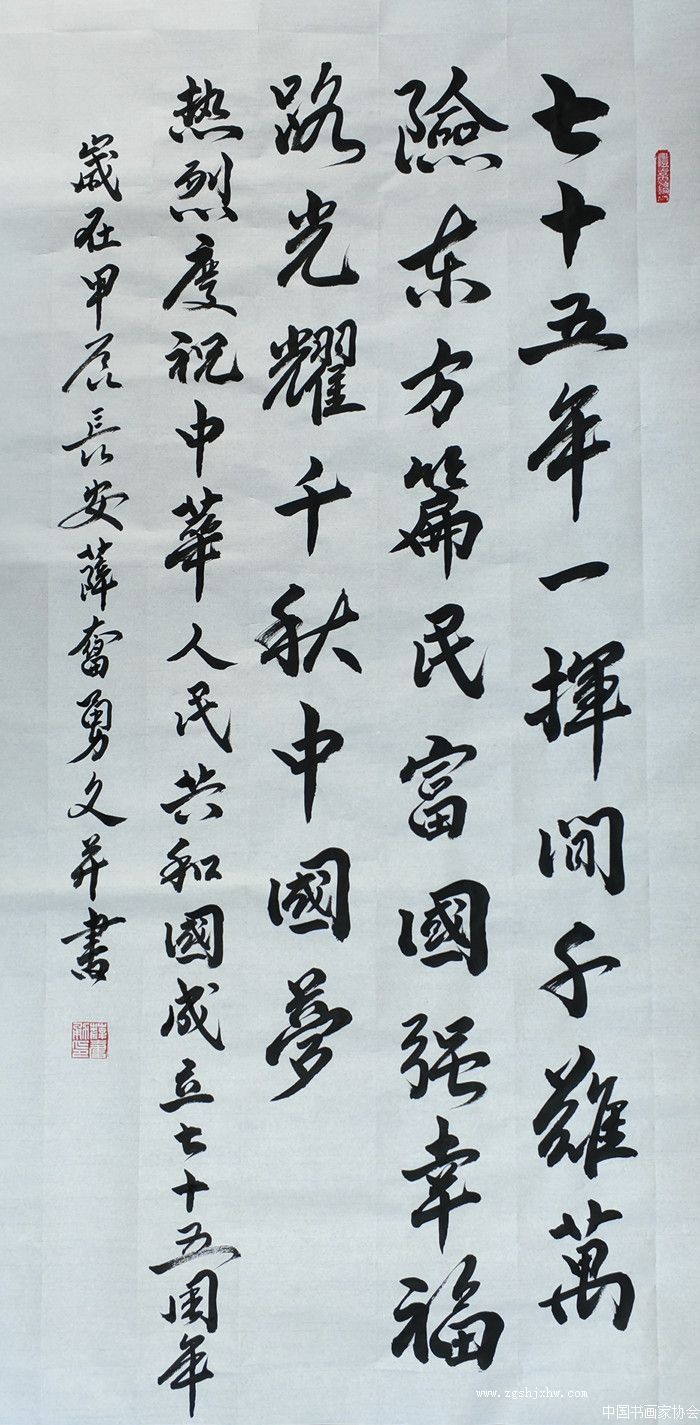 七十五年一揮間千難萬
險东方篇民富國强幸福
路光耀千秋中國夢
热烈慶祝中華人民共和國成立七十五周年
嵗在甲辰長安薛奮勇文并書
www.zgshjxhw.com
中国书画家协会